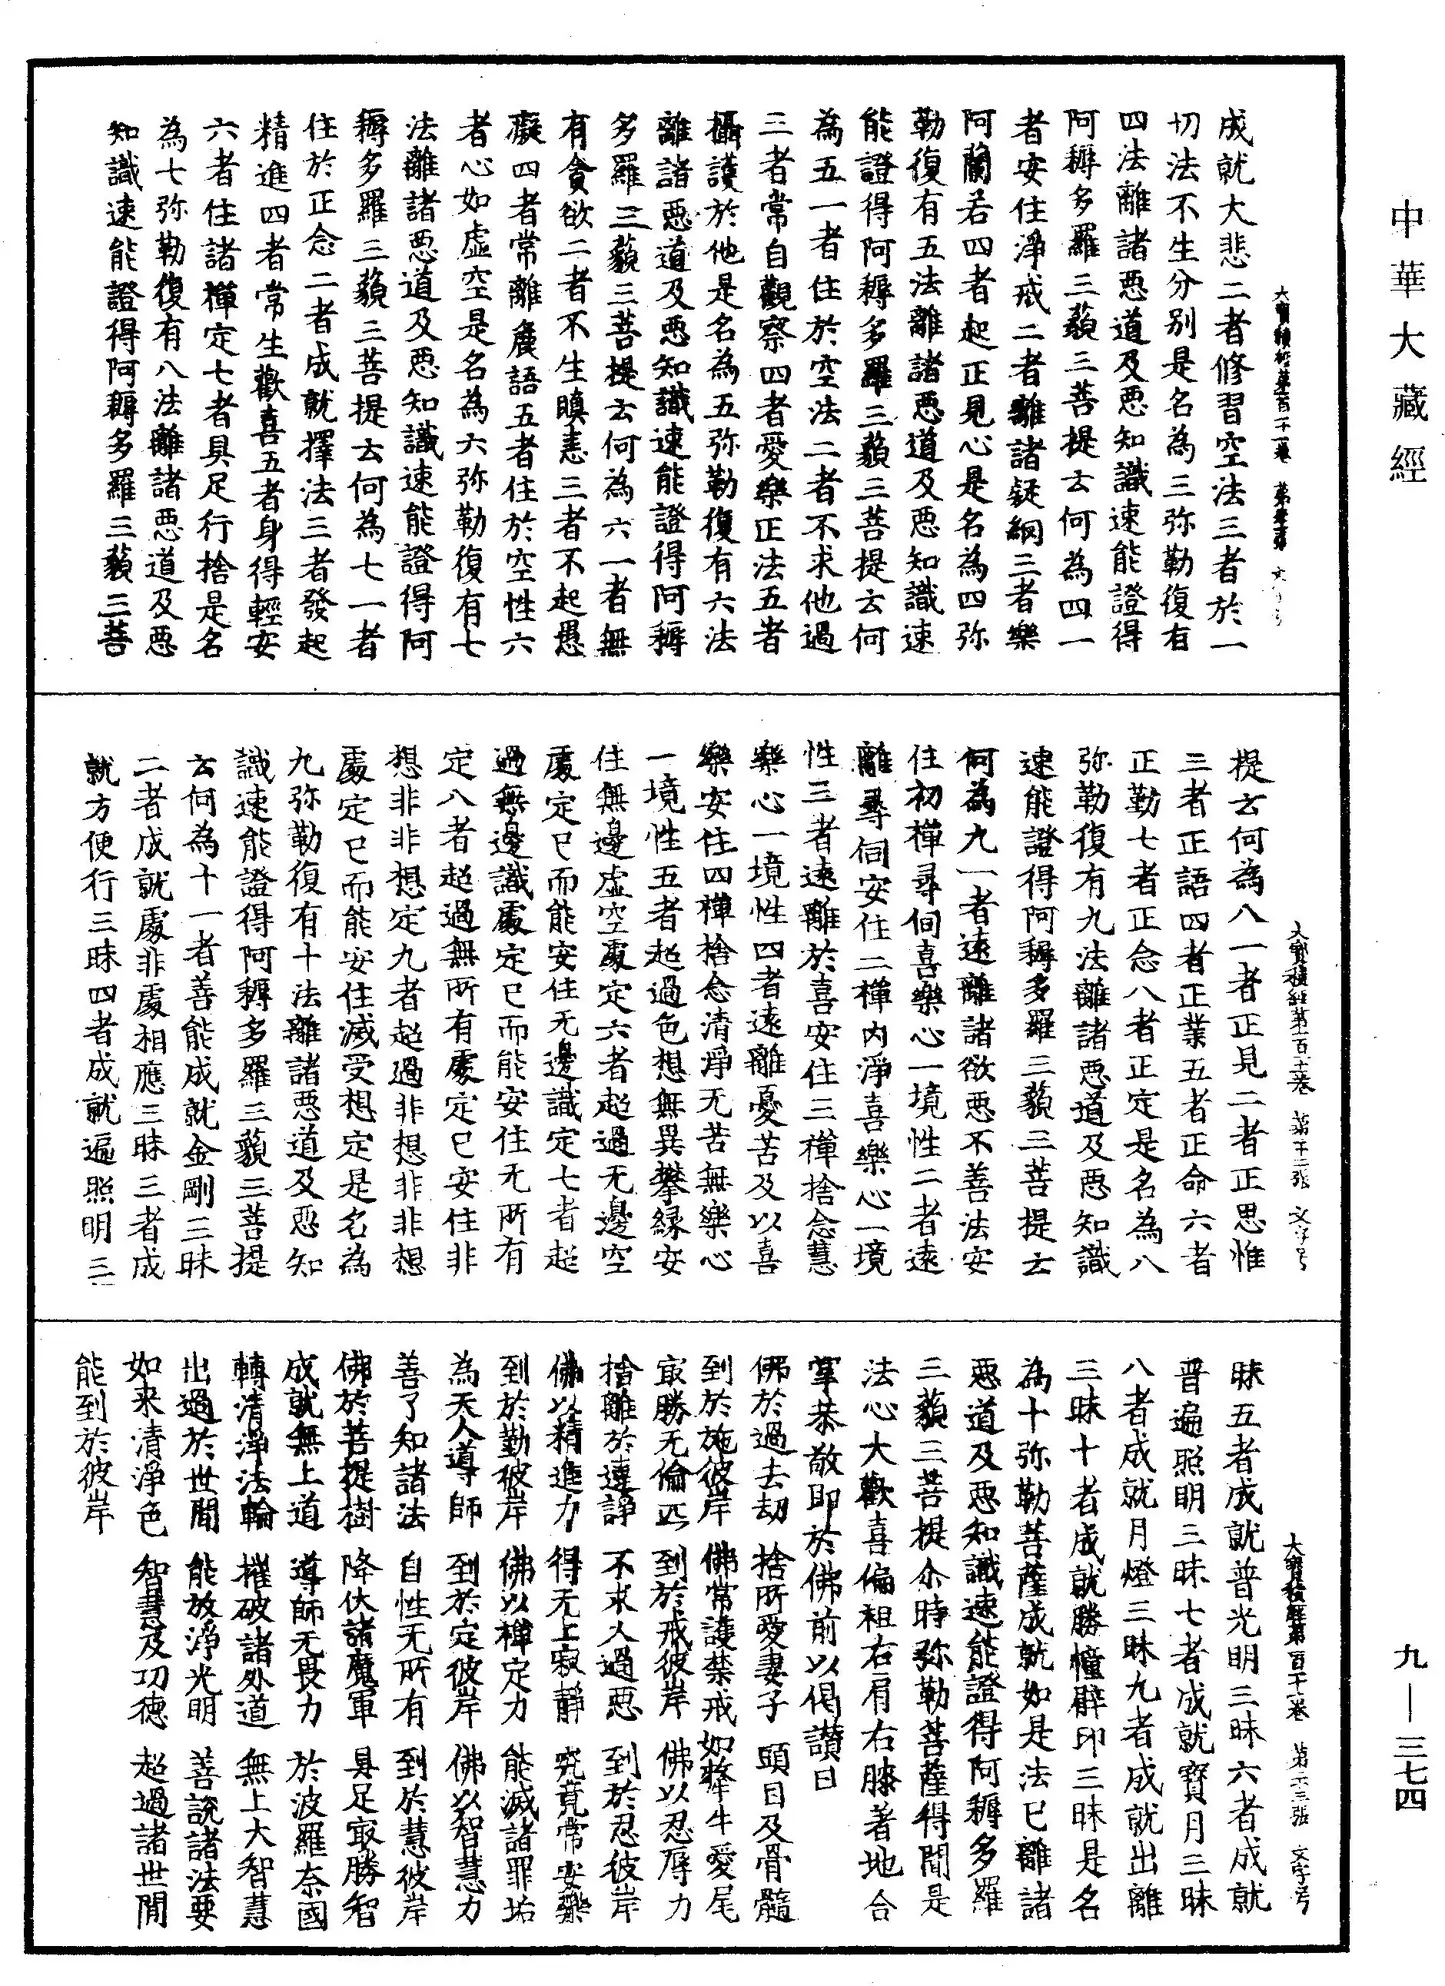 中華大藏經
成就大悲二者修習空法三者於一
切法不生分別是名為三弥勒復有
四法離諸惡道及惡知識速能證得
阿耨多羅三藐三菩提云何為四一
者安住淨戒二者離諸疑網三者樂
阿蘭若四者起正見心是名為四弥
勒復有五法離諸惡道及惡知識速
能證得阿耨多羅三藐三菩提云何
為五一者住於空法二者不求他過
三者常自觀察四者愛樂正法五者
攝護於他是名為五弥勒復有六法
離諸惡道及惡知識速能證得阿耨
多羅三藐三菩提云何為六一者無
有貪欲二者不生瞋恚三者不起愚
癡四者常離麁語五者住於空性六
者心如虛空是名為六弥勒復有七
法離諸惡道及惡知識速能證得阿
耨多羅三藐三菩提云何為七一者
住於正念二者成就擇法三者發起
精進四者常生歡喜五者身得輕安
六者住諸禪定七者具足行捨是名
為七弥勒復有八法離諸惡道及惡
知識速能證得阿耨多羅三藐三菩
大寶積經第百十一卷 第十二張 文字号
提云何為八一者正見二者正思惟
三者正語四者正業五者正命六者
正勤七者正念八者正定是名為八
弥勒復有九法離諸惡道及惡知識
速能證得阿耨多羅三藐三菩提云
何為九一者遠離諸欲惡不善法安
住初禪尋伺喜樂心一境性二者遠
離尋伺安住二禪內淨喜樂心一境
性三者遠離於喜安住三禪捨念慧
樂心一境性四者遠離憂苦及以喜
樂安住四禪捨念清淨无苦無樂心
一境性五者超過色想無異攀緣安
住無邊虛空處定六者超過无邊空
處定已而能安住无邊識定七者超
過無邊識處定已而能安住无所有
定八者超過無所有處定已安住非
想非非想定九者超過非想非非想
處定已而能安住滅受想定是名為
九弥勒復有十法離諸惡道及惡知
識速能證得阿耨多羅三藐三菩提
云何為十一者善能成就金剛三昧
二者成就處非處相應三昧三者成
就方便行三昧四者成就遍照明三
大寶積經第百十一卷 第十三張 文字号
昧五者成就普光明三昧六者成就
普遍照明三昧七者成就寶月三昧
八者成就月燈三昧九者成就出離
三昧十者成就勝幢臂印三昧是名
為十弥勒菩薩成就如是法已離諸
惡道及惡知識速能證得阿耨多羅
三藐三菩提尒時弥勒菩薩得聞是
法心大歡喜偏袒右肩右膝著地合
掌恭敬即於佛前以偈讃曰
佛於過去劫 捨所愛妻子 頭目及骨髓
到於施彼岸 佛常護禁戒 如犛牛愛尾
㝡勝无倫匹 到於戒彼岸 佛以忍辱力
捨離於違諍 不求人過惡 到於忍彼岸
佛以精進力 得无上寂靜 究竟常安樂
到於勤彼岸 佛以禪定力 能滅諸罪垢
為天人導師 到於定彼岸 佛以智慧力
善了知諸法 自性无所有 到於慧彼岸
佛於菩提樹 降伏諸魔軍 具足㝡勝智
成就無上道 導師无畏力 於波羅奈國
轉清淨法輪 摧破諸外道 無上大智慧
出過於世間 能放淨光明 善說諸法要
如来清淨色 智慧及功德 超過諸世間
能到於彼岸
九—三七四